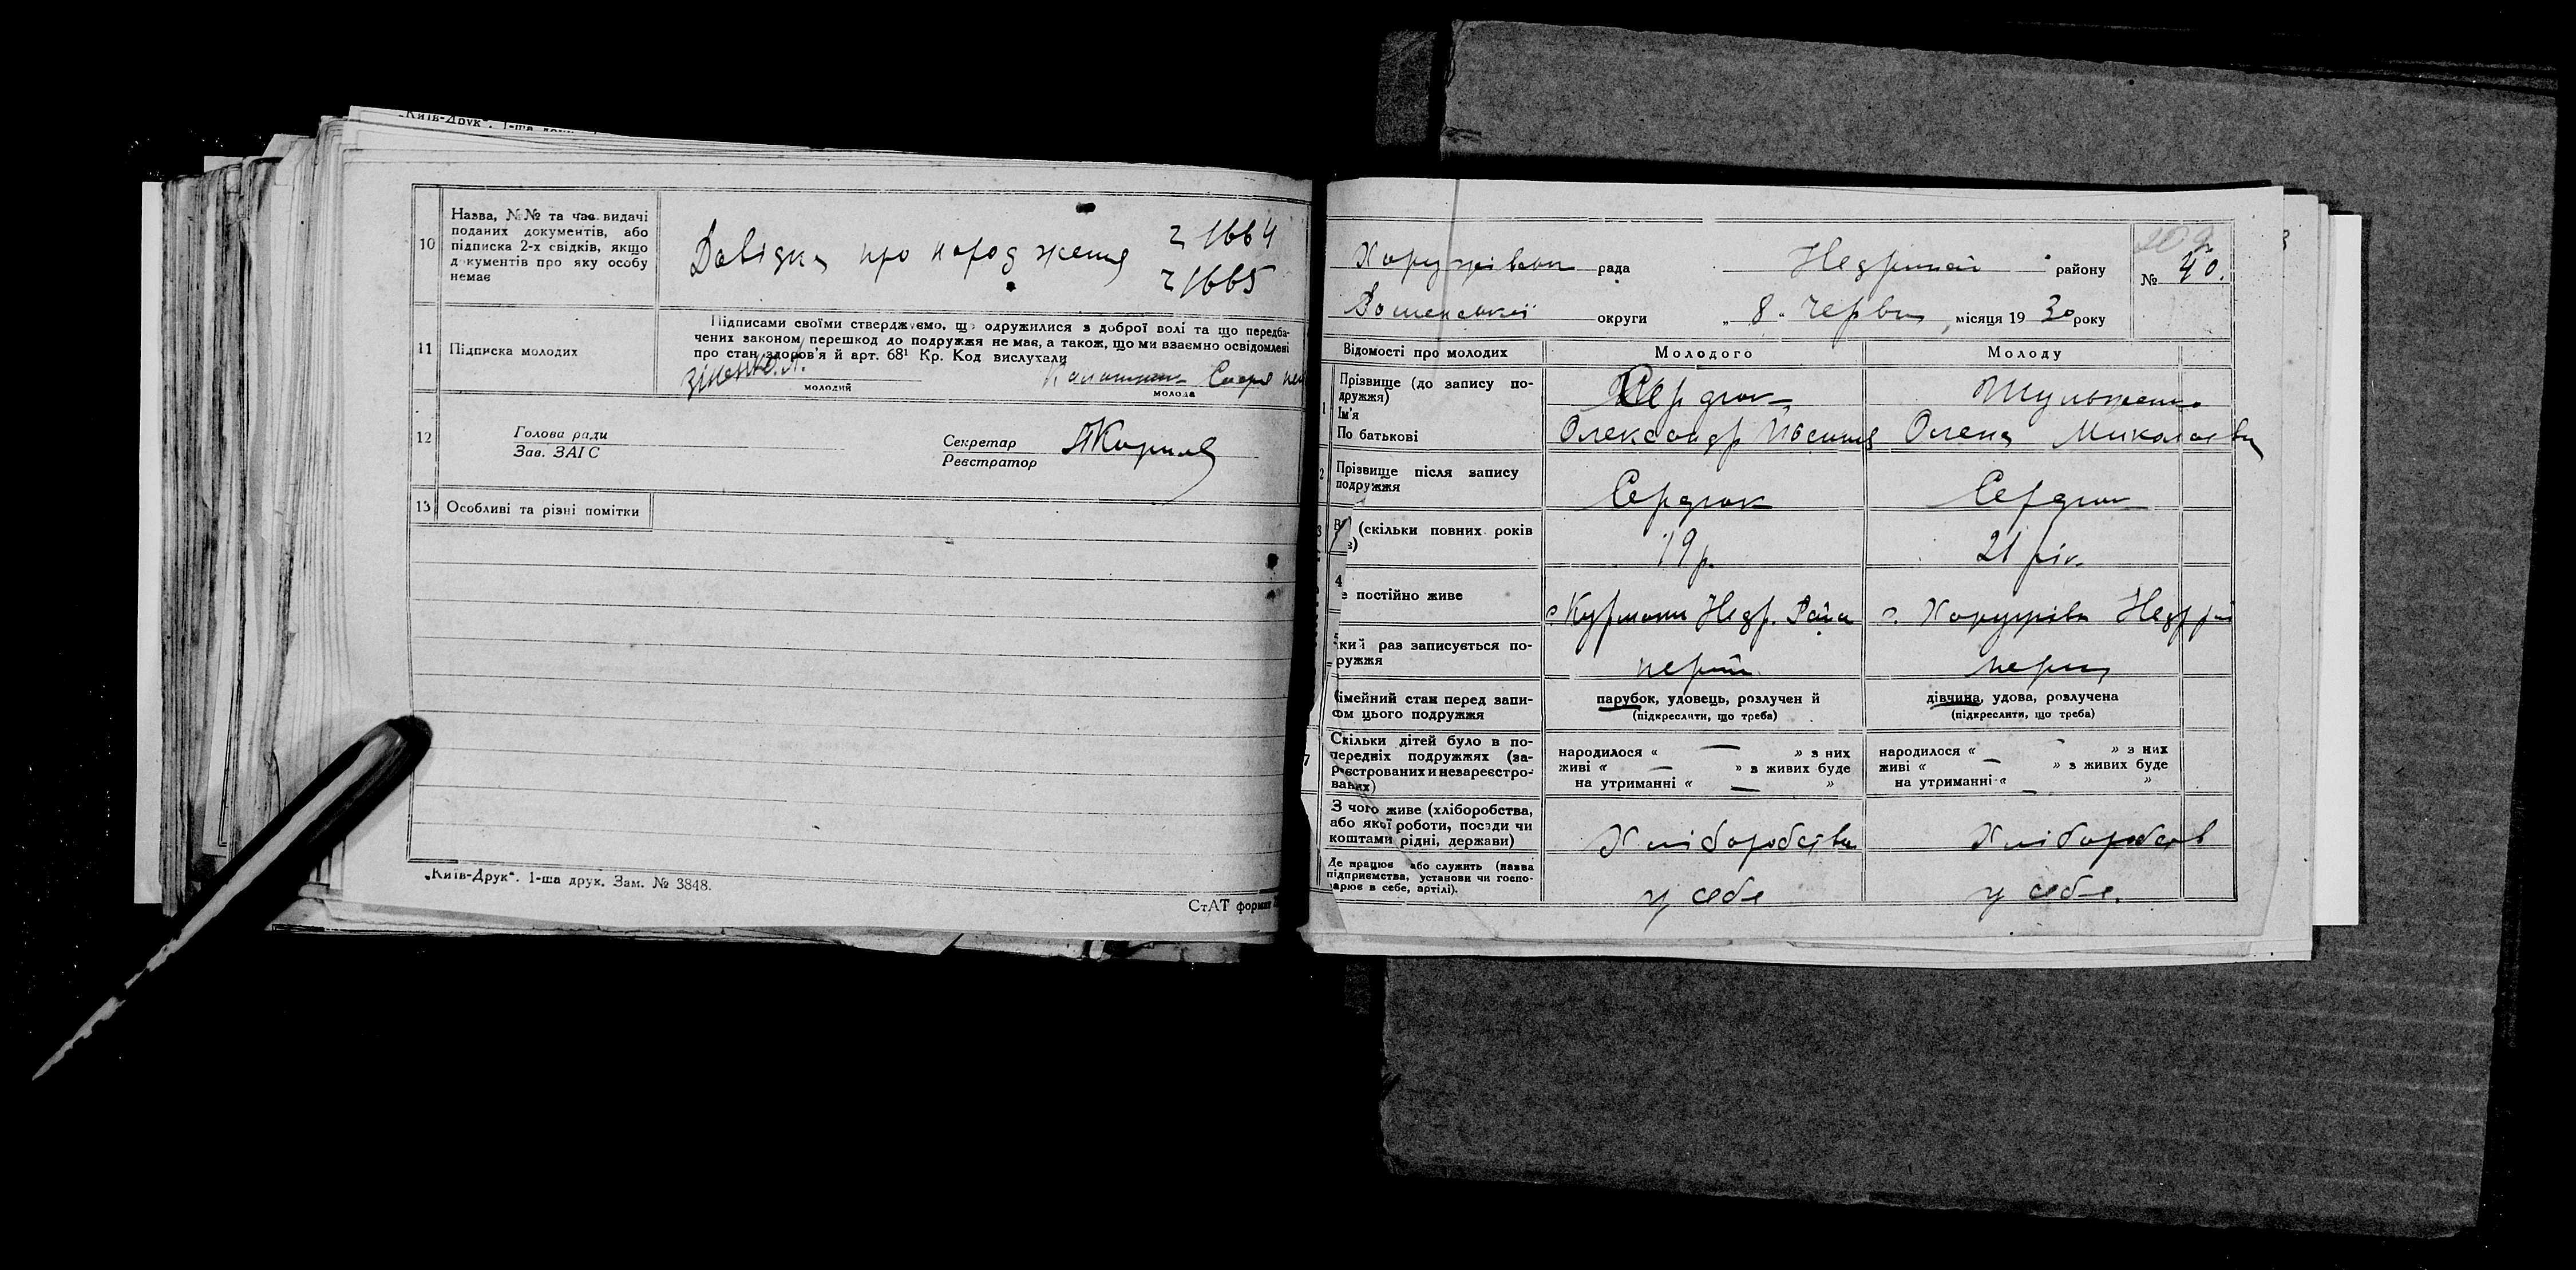 „Київ-Друк“. 1-ша друк.
10
Назва, №№ та час видачі
поданих документів, або
підписка 2-х свідків, якщо
документів про яку особу
немає
Довідка про народження 1664
1665
11 Підписка молодих
Підписами своїми стверджуємо, що одружилися з доброї волі та що передба-
чених законом перешкод до подружжя не має, а також, що ми взаємно освідомлені
про стан здоров'я й арт. 68¹ Кр. Код вислухали
молодий
молода
12
Голова ради
Зав. ЗАГС
Секретар
Реєстратор
13 Особливі та різні помітки
„Київ-Друк“. 1-ша друк. Зам. № 3848.
СтАТ формат
Хоружівська рада Недриг район району
№ 40.
Роменської округи „ 8 „ червня місяця 1930 року
Відомості про молодих Молодого Молоду
1
Прізвище (до запису по-
дружжя) Сердюк Шульженко
Ім'я
По батькові Олександр Олена Миколаєвн
2 Прізвище після запису
подружжя Сердюк Сердюк
3 (скільки повних років
19 р. 21 рік
4
постійно живе с. Курмани Недр. Рай с. Хоружівк Недр рай
кий раз записується по-
ружжя перший перш
імейний стан перед запи-
ом цього подружжя
парубок, удовець, розлучен й дівчина, удова, розлучена
(підкреслити, що треба) (підкреслити, що треба)
7
Скільки дітей було в по-
передніх подружжях (за-
реєстрованих и незареєстро-
ваних)
народилося « — » з них народилося « — » з них
живі « — » з живих буде живі « — » з живих буде
на утриманні « — » на утриманні « — »
З чого живе (хліборобства,
або якої роботи, посади чи
коштами рідні, держави)
Хліборобства Хлібороств
Де працює або служить (назва
підприємства, установи чи госпо-
дарює в себе, артілі).
у себе у себе.